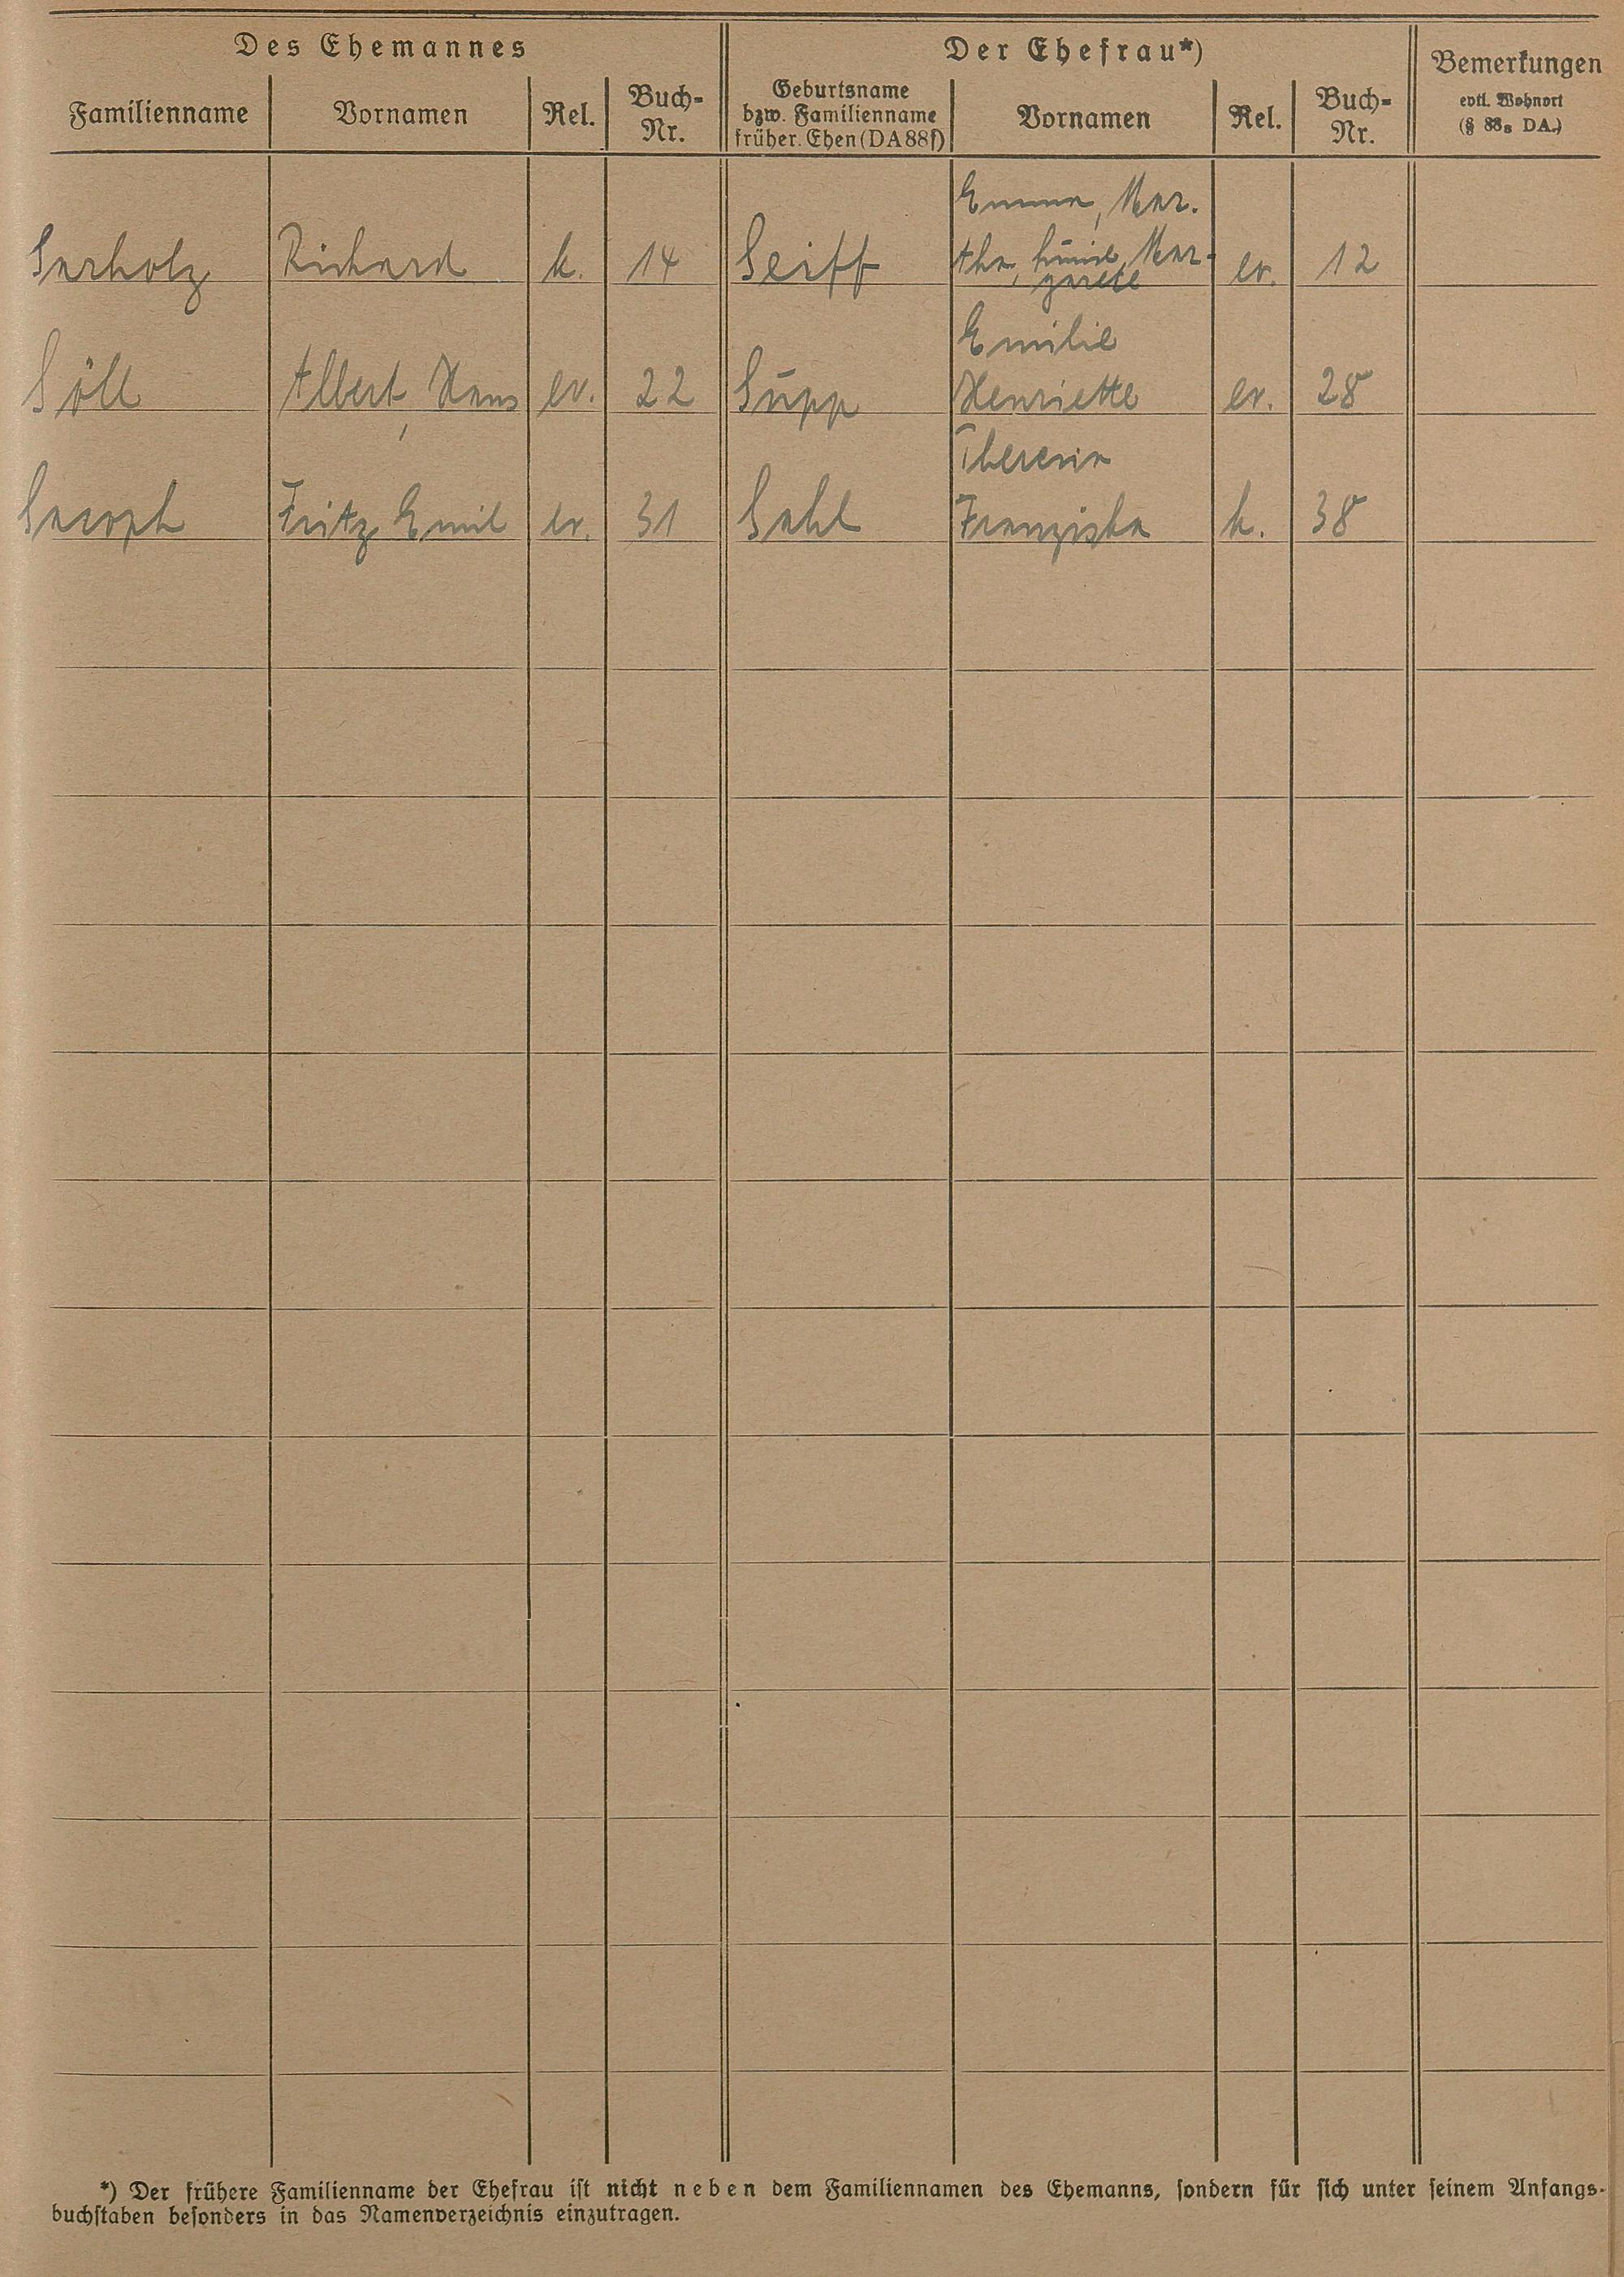 Des Ehemannes
Der Ehefrau*)
Bemerkungen
evtl. Wohnort
(§ 88a DA.)
Familienname
Vornamen
Rel.
Buch-
Nr.
Geburtsname
bzw. Familienname
früher. Ehen (DA 88f)
Vornamen
Rel.
Buch-
Nr.
Emma, Mar-
Sarholz Richard k. 14 Seiff tha, Luise, Mar- ev. 12
garete
Emilie
Söll Albert, Hans ev. 22 Supp Henriette ev. 28
Theresia
Fritz Emil ev. 31 Sahl Franziska k. 38
*) Der frühere Familienname der Ehefrau ist nicht neben dem Familiennamen des Ehemanns, sondern für sich unter seinem Anfangs-
buchstaben besonders in das Namenverzeichnis einzutragen.